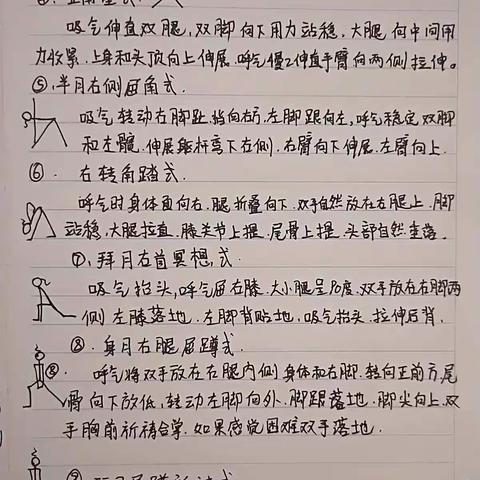 吸气伸直双腿,双脚向下用力站稳,大腿向中间用
力收紧.上身和头顶向上伸展.呼气慢慢伸直手臂向两侧拉伸。
⑤,半月右侧屈角式.
吸气转动右脚趾.指向右方.左脚跟向左,呼气稳定双脚
和左髋.伸展躯杆弯下右侧.右臂向下伸展.左臂向上.
⑥. 右转角踏式.
呼气时身体面向右.腿折叠向下.双手自然放在右腿上.脚
站稳.大腿拉直.膝关节上提.尾骨上提.头部自然垂落.
⑦,拜月右首冥想式.
吸气抬头,呼气屈右膝.大小腿呈90度.双手放在右脚两
侧.左膝落地.左脚背贴地.吸气抬头.拉伸后背.
⑧.身月右腿屈蹲式.
⑧. 呼气将双手放在右腿内侧.身体和右脚.转向正前方尾
骨向下放低,转动左脚向外.脚跟落地.脚尖向上.双
手胸前祈祷合掌.如果感觉困难双手落地.